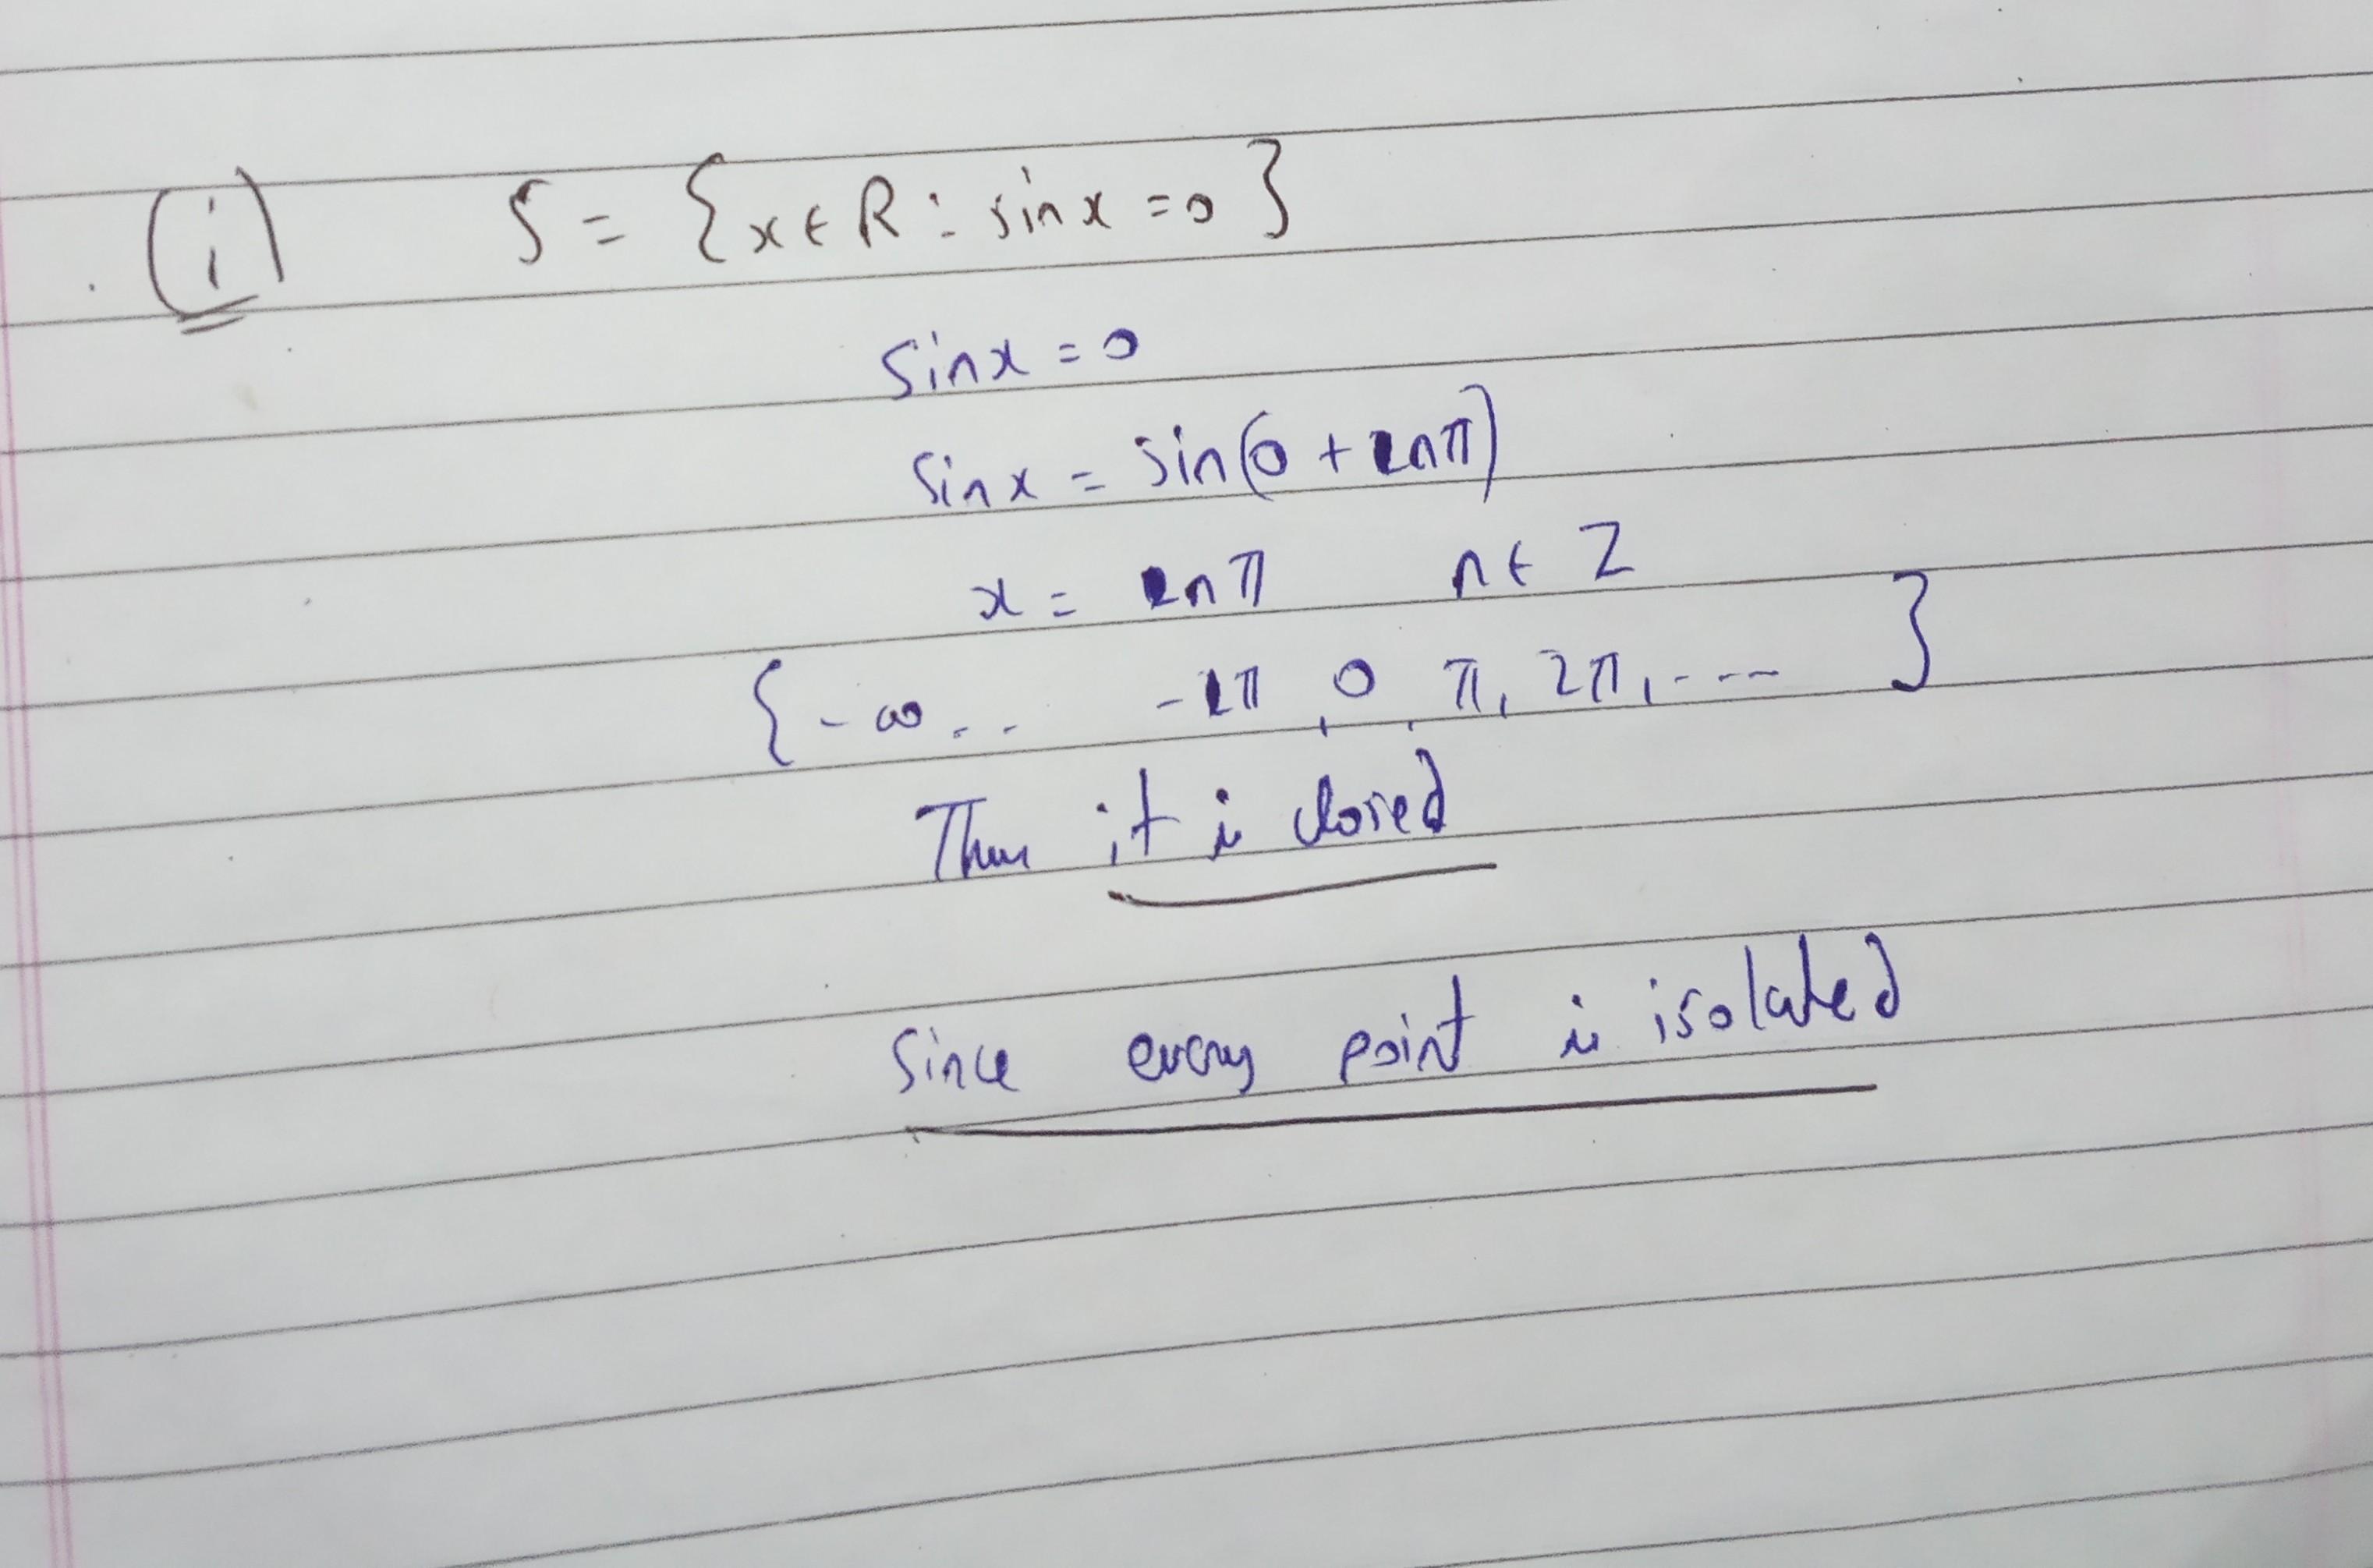 (i) S = {x ∈ R : sin x = 0}
sin x = 0
sin x = sin(0 + nπ)
x = nπ n ∈ Z
{-∞.. -π, 0, π, 2π, ---- }
Thus it is closed
Since every point is isolated